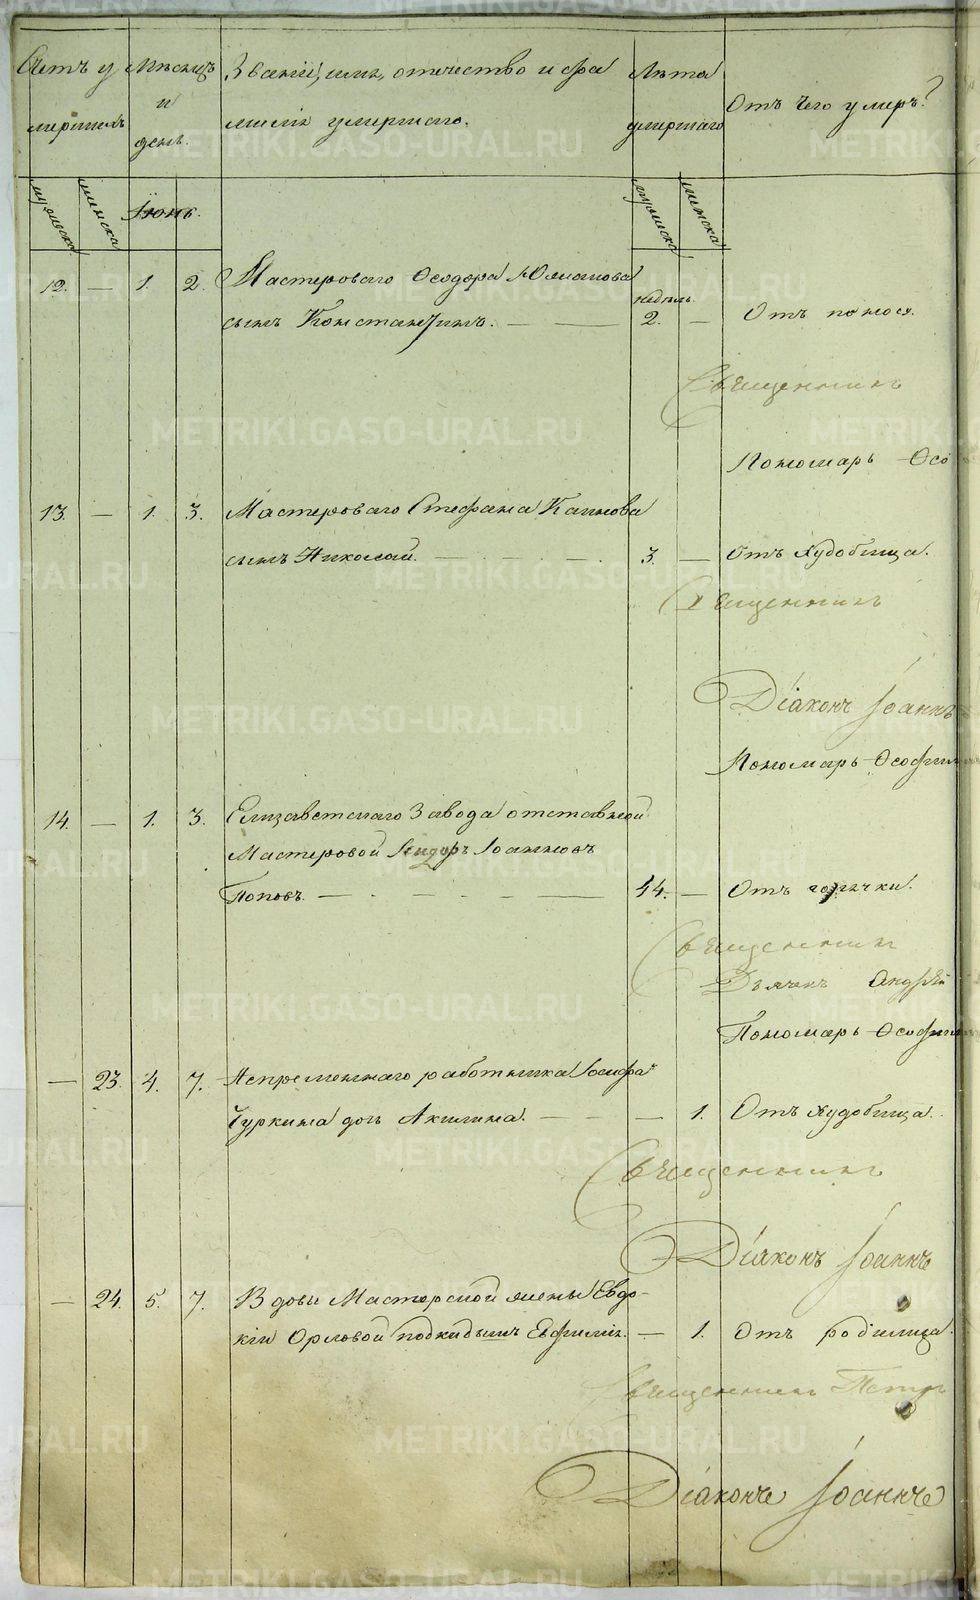 Счетъ у
мершихъ
Мѣсяцъ
и
день.
Званіе, имя, отечество и фа
милія умершаго.
Лѣта
умершаго
Отъ чего умеръ?
мужеска
женска
Іюнь.
мужеска
женска
12. — 1. 2. Мастероваго Ѳеодора
недѣль
сынъ Константинъ. — — 2. — Отъ поноса.
Священникъ
Пономарь Ѳео
13. — 1. 3. Мастероваго Стефана
сынъ Николай. — — — 3. — Отъ худобища.
Священникъ
Діаконъ Іоаннъ
Пономарь Ѳеофил
14. — 1. 3. Елизаветскаго Завода отставной
Мастеровой Исидоръ Іоанновъ
Поповъ. — — — — 44. — Отъ горячки.
Священникъ
Дьячекъ Андрей
Пономарь Ѳеофил
— 23. 4. 7. Непременнаго работника Іосифа
Чуркина дочь Акилина. — — — 1. Отъ худобища.
Священникъ
Діаконъ Іоаннъ
— 24. 5. 7. Вдовы Мастерской жены Евдо-
кіи Орловой подкидышъ Евфимія. — 1. Отъ родимца.
Священникъ Петръ
Діаконъ Іоаннъ
METRIKI.GASO-URAL.RU